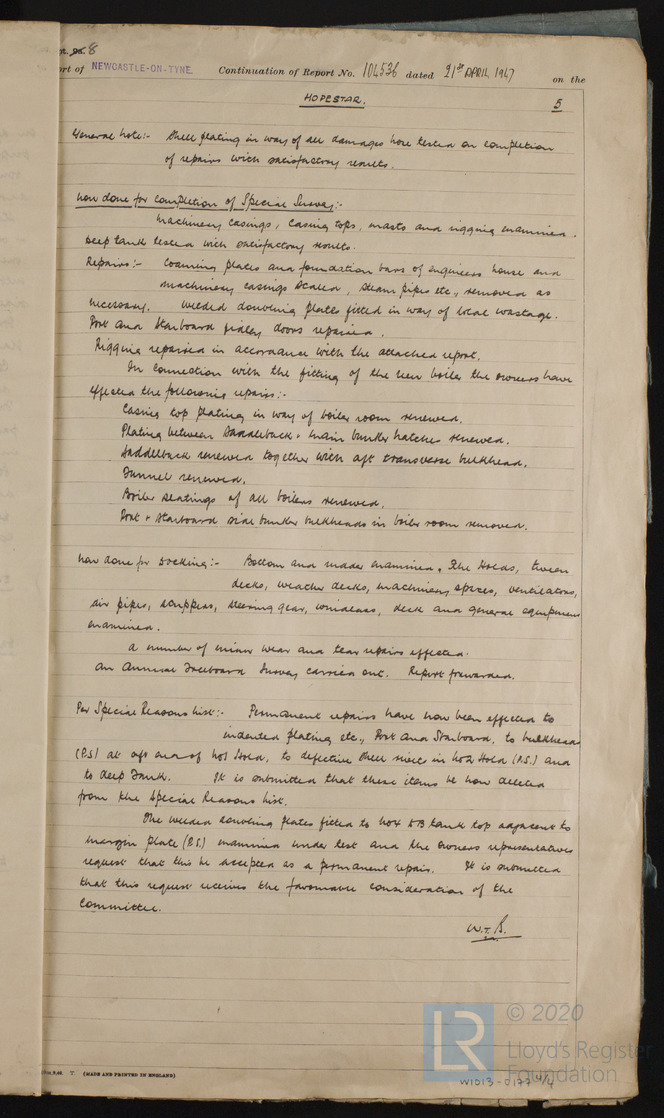 pt. No. 8
ort of NEWCASTLE-ON-TYNE. Continuation of Report No. 104536 dated 21st APRIL 1947 on the
HOPESTAR. 5
General Note:- Shell plating in way of all damages hose tested on completion
of repairs with satisfactory results.
Now done for completion of Special Survey:-
Machinery casings, casing tops, masts and rigging examined.
Deep tank tested with satisfactory results.
Repairs:- Coaming plates and foundation bars of engineers house and
machinery casings scaled, steam pipes etc., removed as
necessary. Welded doubling plates fitted in way of local wastage.
Port and Starboard fidley doors repaired.
Rigging repaired in accordance with the attached report.
In connection with the fitting of the new boiler the owners have
effected the following repairs:-
Casing top plating in way of boiler room renewed.
Plating between Saddleback & main bunker hatches renewed.
Saddleback renewed together with aft transverse bulkhead.
Funnel renewed.
Boiler seatings of all boilers renewed.
Port & Starboard side bunker bulkheads in boiler room removed.
Now done for Docking:- Bottom and rudder examined. The Holds, tween
decks, weather decks, machinery spaces, ventilators,
air pipes, scuppers, steering gear, windlass, deck and general equipment
examined.
A number of minor wear and tear repairs effected.
An Annual Freeboard Survey carried out. Report forwarded.
Per Special Reasons List:- Permanent repairs have now been effected to
indented plating etc., Port and Starboard, to bulkheads
(P.S.) at aft end of No1 Hold, to defective shell rivets in No2 Hold (P.S.) and
to deep tank. It is submitted that these items be now deleted
from the Special Reasons List.
The welded doubling plates fitted to No4 DB tank top adjacent to
margin plate (P.S.) examined under test and the owners representatives
request that this be accepted as a permanent repair. It is submitted
that this request receives the favourable consideration of the
Committee.
W.T.B.
T. (MADE AND PRINTED IN ENGLAND)
© 2020
LR Lloyd's Register
Foundation
W1013-0177 4/4